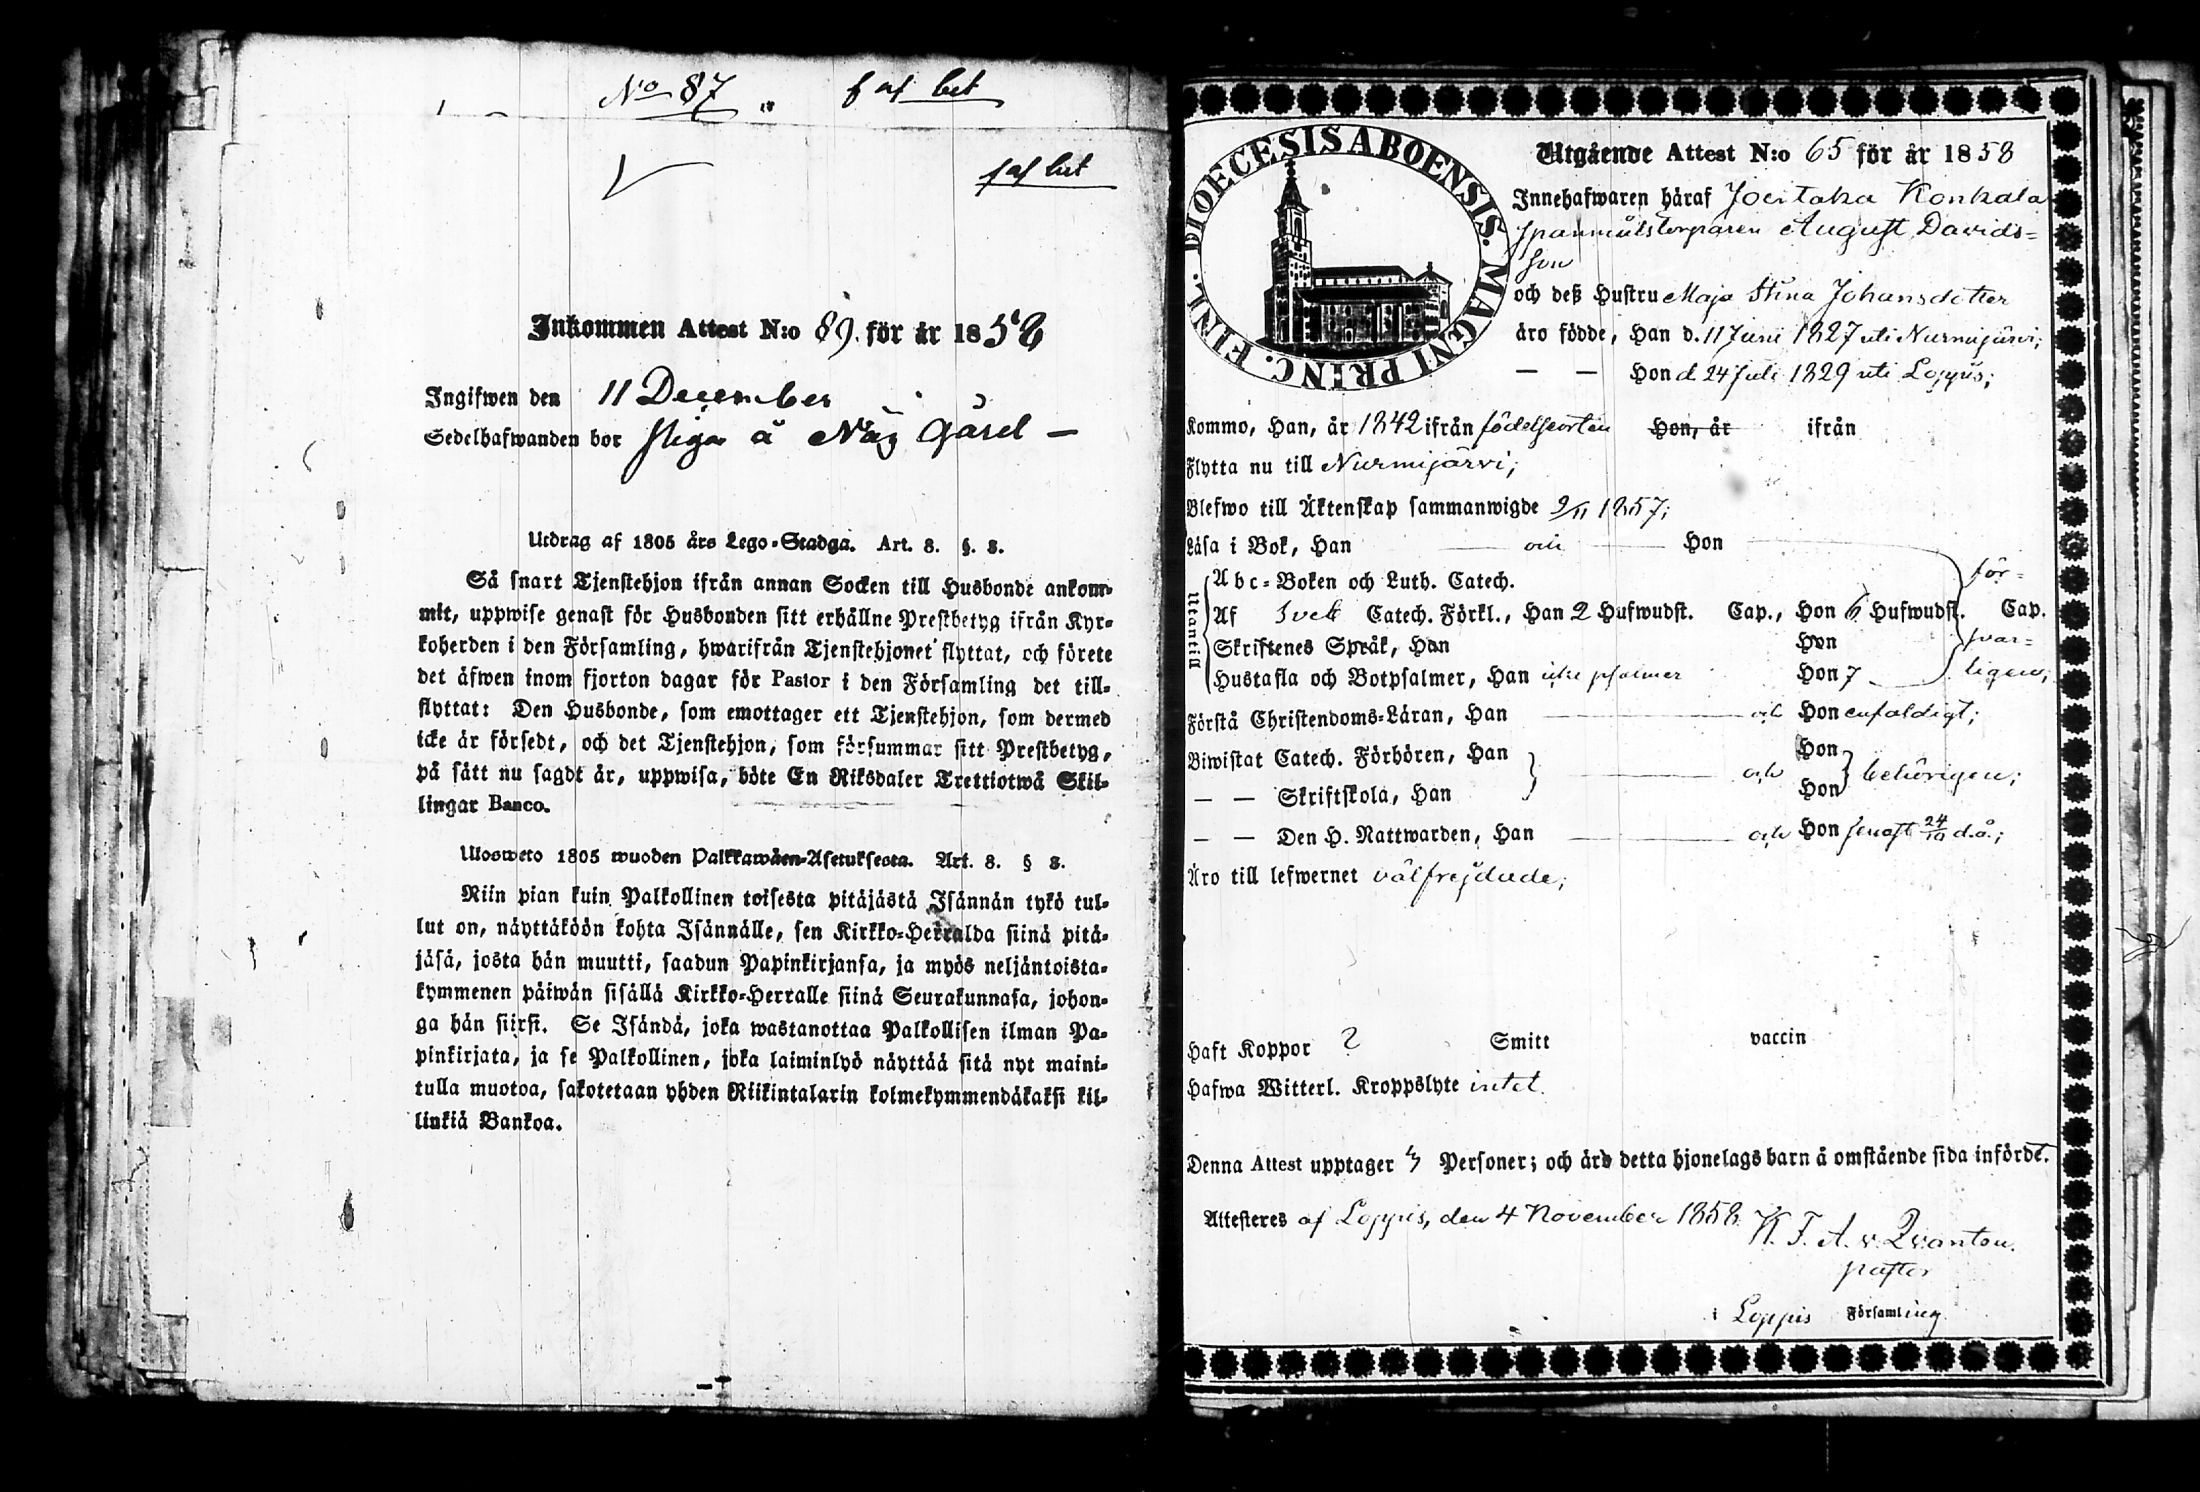 No 87
f af bet
f af bet
Inkommen Attest N:o 89. för år 1858
Ingifwen den 11 December
Sedelhafwanden bor å
Utdrag af 1805 års Lego-Stadga. Art. 8. §. 8.
Så snart Tjenstehjon ifrån annan Socken till Husbonde ankom-
mit, uppwise genast för Husbonden sitt erhållne Prestbetyg ifrån Kyr-
koherden i den Församling, hwarifrån Tjenstehjonet flyttat, och förete
det äfwen inom fjorton dagar för Pastor i den Församling det till-
flyttat: Den Husbonde, som emottager ett Tjenstehjon, som dermed
icke är försedt, och det Tjenstehjon, som försummar sitt Prestbetyg,
på sätt nu sagdt är, uppwisa, böte En Riksdaler Trettiotwå Skil-
lingar Banco.
Ulosweto 1805 wuoden Palkkawäen-Asetuksesta. Art. 8. § 8.
Niin pian kuin Palkollinen toisesta pitäjästä Isännän tykö tul-
lut on, näyttäköön kohta Isännälle, sen Kirkko-Herralda siinä pitä-
jäsä, josta hän muutti, saadun Papinkirjansa, ja myös neljäntoista-
kymmenen päiwän sisällä Kirkko-Herralle siinä Seurakunnasa, johon-
ga hän siirsi. Se Isändä, joka wastanottaa Palkollisen ilman Pa-
pinkirjata, ja se Palkollinen, joka laiminlyö näyttää sitä nyt maini-
tulla muotoa, sakotetaan yhden Riikintalarin kolmekymmendäkaksi kil-
linkiä Bankoa.
DIOECESIS ABOENSIS. MAGNI PRINC. FINL.
Utgående Attest N:o 65 för år 1858
Innehafwaren häraf Joentaka Konkala
Spannmålstorparen August Davids=
son
och deß Hustru Maja Stina Johansdotter
äro födde, Han d. 11 Juni 1827 uti Nurmijärvi;
— — Hon d 24 Juli 1829 uti Loppis;
Kommo, Han, år 1842 ifrån födelseorten Hon, år ifrån
Flytta nu till Nurmijärvi;
Blefwo till Äktenskap sammanwigde 9/11 1857;
Läsa i Bok, Han och Hon
Utantill
Abc-Boken och Luth. Catech.
Af Sveb Catech. Förkl., Han 2 Hufwudst. Cap., Hon 6 Hufwudst. Cap.
Skriftenes Språk, Han Hon
Hustafla och Botpsalmer, Han icke psalmer Hon 7
för=
svar=
ligen;
Förstå Christendoms-Läran, Han och Hon enfaldigt;
Biwistat Catech. Förhören, Han Hon
— — Skriftskola, Han och Hon behörigen;
— — Den H. Nattwarden, Han och Hon senast 24/10 d.å.;
Äro till lefwernet välfrejdade;
Haft Koppor ? Smitt vaccin
Hafwa Witterl. Kroppslyte intet.
Denna Attest upptager Personer; och äro detta hjonelags barn å omstående sida införde.
Attesteres af Loppis, den 4 November 1858.
K. F. A. v. Qvanten.
pastor
i Loppis Församling